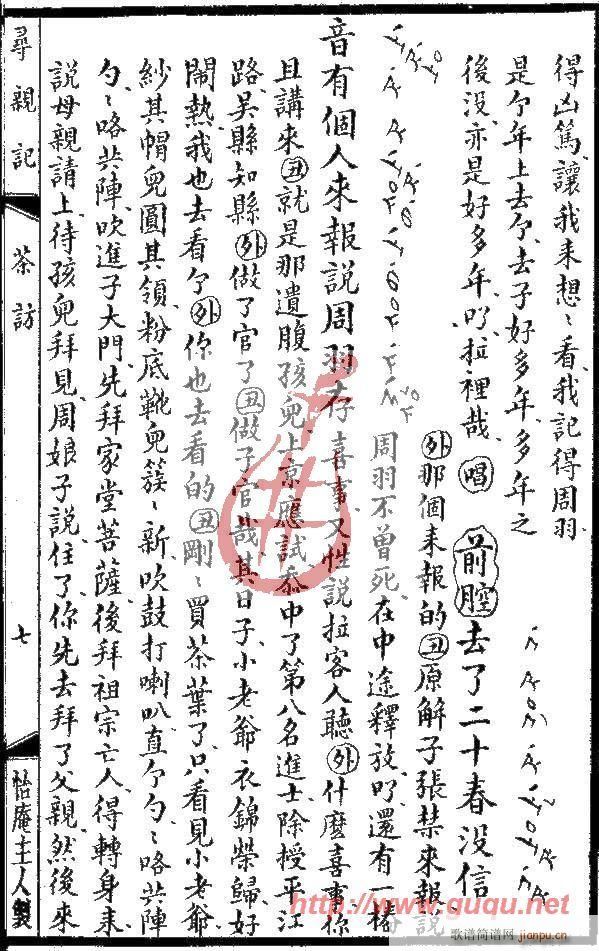 得凶篤、讓我来想〻看、我記得周羽
是个年上去个、去子好多年、多年之
後没、亦是好多年、叮、拉裡哉、唱 前腔 去了二十春没信
音有個人來報説周羽存 外那個来報的丑原解子張禁來報説
周羽不曾死、在中途釋放、叮、還有一樁
喜事、又性説拉客人聽、外什麽喜事、你
且講来、丑就是那遺腹孩兒、上京應試、忝中了第八名進士、除授平江
路、吳縣知縣、外做了官了、丑做子官哉、其日子、小老爺衣錦榮歸、好
鬧熱、我也去看个、外你也去看的、丑剛〻買茶葉了、只看見小老爺、
紗其帽兒、圓其領、粉底靴兒、簇〻新、吹鼓打喇叭、直个勺〻咯共陣
勺〻咯共陣、吹進子大門、先拜家堂菩薩、後拜祖宗亡人、得轉身来、
説母親請上、待孩兒拜見、周娘子説、住了、你先去拜了父親、然後来
尋親記 茶訪 七 怡庵主人製
http://www.guqu.net
歌谱简谱网
jianpu.cn